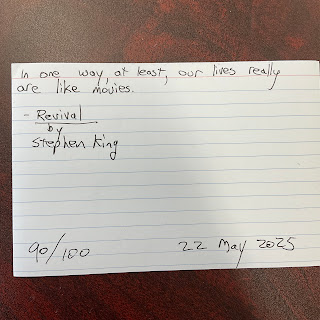 In one way, at least, our lives really
are like movies.
- Revival
by
Stephen King
90/100
22 May 2025